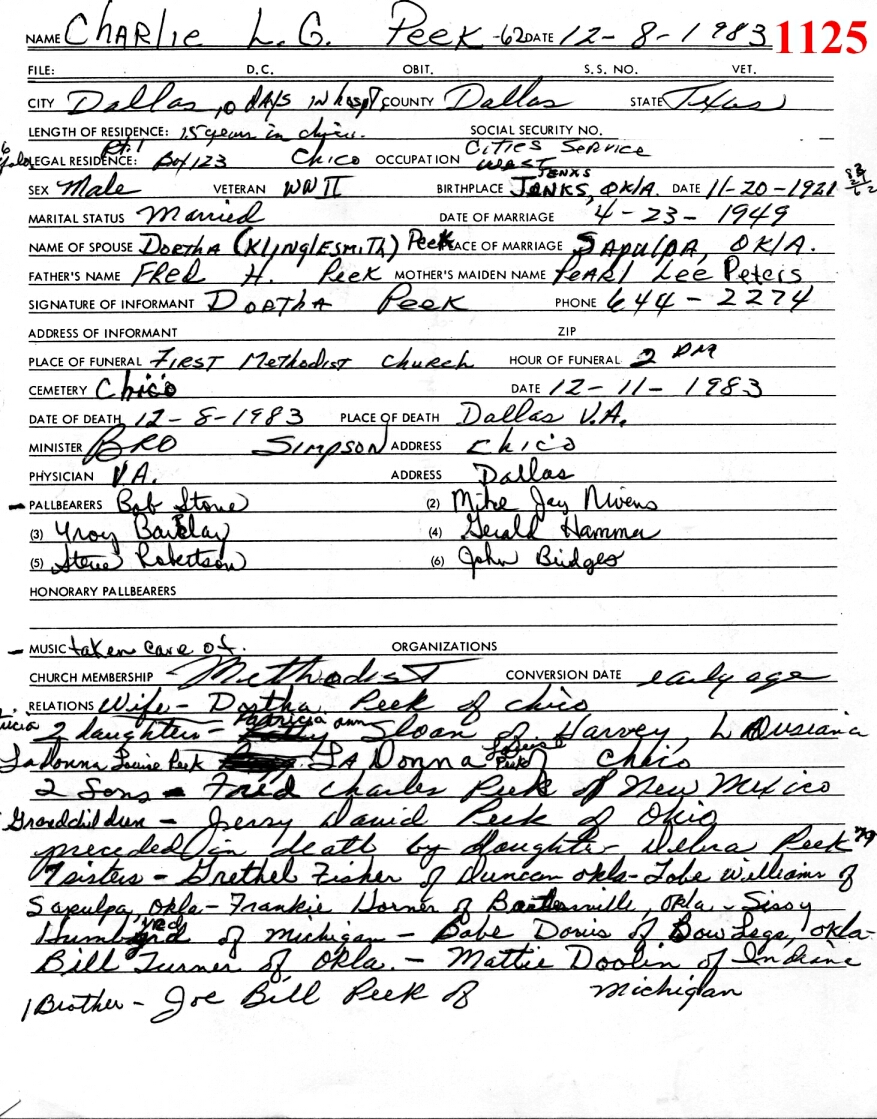 NAME CHARlie L. G. Peek -62 DATE 12-8-1983 1125
FILE: D.C. OBIT. S.S. NO. VET.
CITY Dallas, days in hospt, COUNTY Dallas STATE Texas
LENGTH OF RESIDENCE: 15 years in chico. SOCIAL SECURITY NO.
Rt. 1 Cities Service
LEGAL RESIDENCE: Box 123 Chico OCCUPATION WEST
JENKS
SEX Male VETERAN WW II BIRTHPLACE JENKS, OKlA. DATE 11-20-1921
MARITAL STATUS Married DATE OF MARRIAGE 4-23-1949
NAME OF SPOUSE DORTHA (KLINGLESMITH) Peek PLACE OF MARRIAGE SApulpA, OKlA.
FATHER'S NAME FRed H. Peek MOTHER'S MAIDEN NAME PeARl Lee Peters
SIGNATURE OF INFORMANT DORTHA Peek PHONE 644-2274
ADDRESS OF INFORMANT ZIP
PLACE OF FUNERAL FIRST Methodist Church HOUR OF FUNERAL 2 PM
CEMETERY Chico DATE 12-11-1983
DATE OF DEATH 12-8-1983 PLACE OF DEATH Dallas V.A.
MINISTER BRO Simpson ADDRESS Chico
PHYSICIAN V.A. ADDRESS Dallas
- PALLBEARERS Bob Stone (2) Mike Jay Nivens
(3) Troy Barklay (4) Gerald Hammer
(5) Steve Robertson (6) John Bridges
HONORARY PALLBEARERS
- MUSIC taken care of. ORGANIZATIONS
CHURCH MEMBERSHIP Methodist CONVERSION DATE early age
RELATIONS Wife - Dortha Peek of chico
2 daughters - Patricia ann Sloan of Harvey, Lousiania
Ladonna Louise Peek LA Donna Louise Peek Chico
2 Sons - Fred Charles Peek of New Mexico
Grandchildren - Jerry David Peek of Ohio
preceded in death by daughter Delna Peek '79
7 sisters - Grethel Fisher of Duncan okla - Tobe Williams of
Sapulpa, okla - Frankie Horner of Bartlesville, okla - Sissy
Humbyrd of Michigan - Babe Davis of Bow Legs, okla -
Bill Turner of Okla. - Mattie Doolin of Indiana
1 Brother - Joe Bill Peek of Michigan